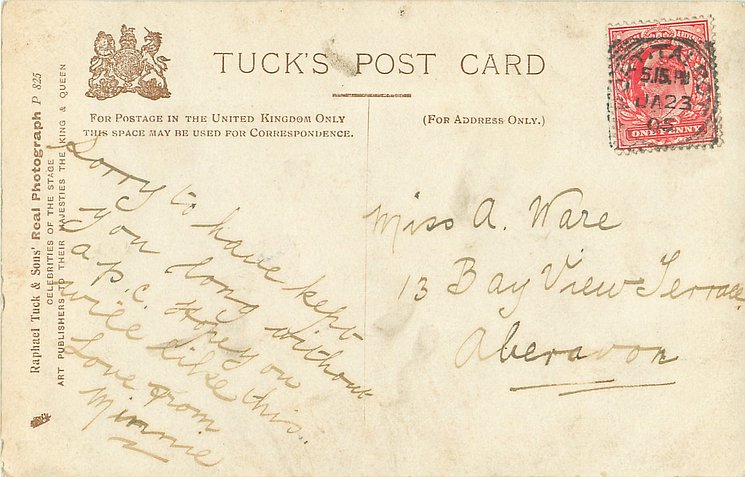 TUCK'S POST CARD
FOR POSTAGE IN THE UNITED KINGDOM ONLY
THIS SPACE MAY BE USED FOR CORRESPONDENCE.
(FOR ADDRESS ONLY.)
Raphael Tuck & Sons' Real Photograph P 825
CELEBRITIES OF THE STAGE
ART PUBLISHERS TO THEIR MAJESTIES THE KING & QUEEN
Sorry to have kept
you long without
a p.c. Hope you
will like this..
Love from
Minnie
Miss A. Ware
13 Bay View Terrace
Aberavon
5.15 PM
JA 23
05
ONE PENNY